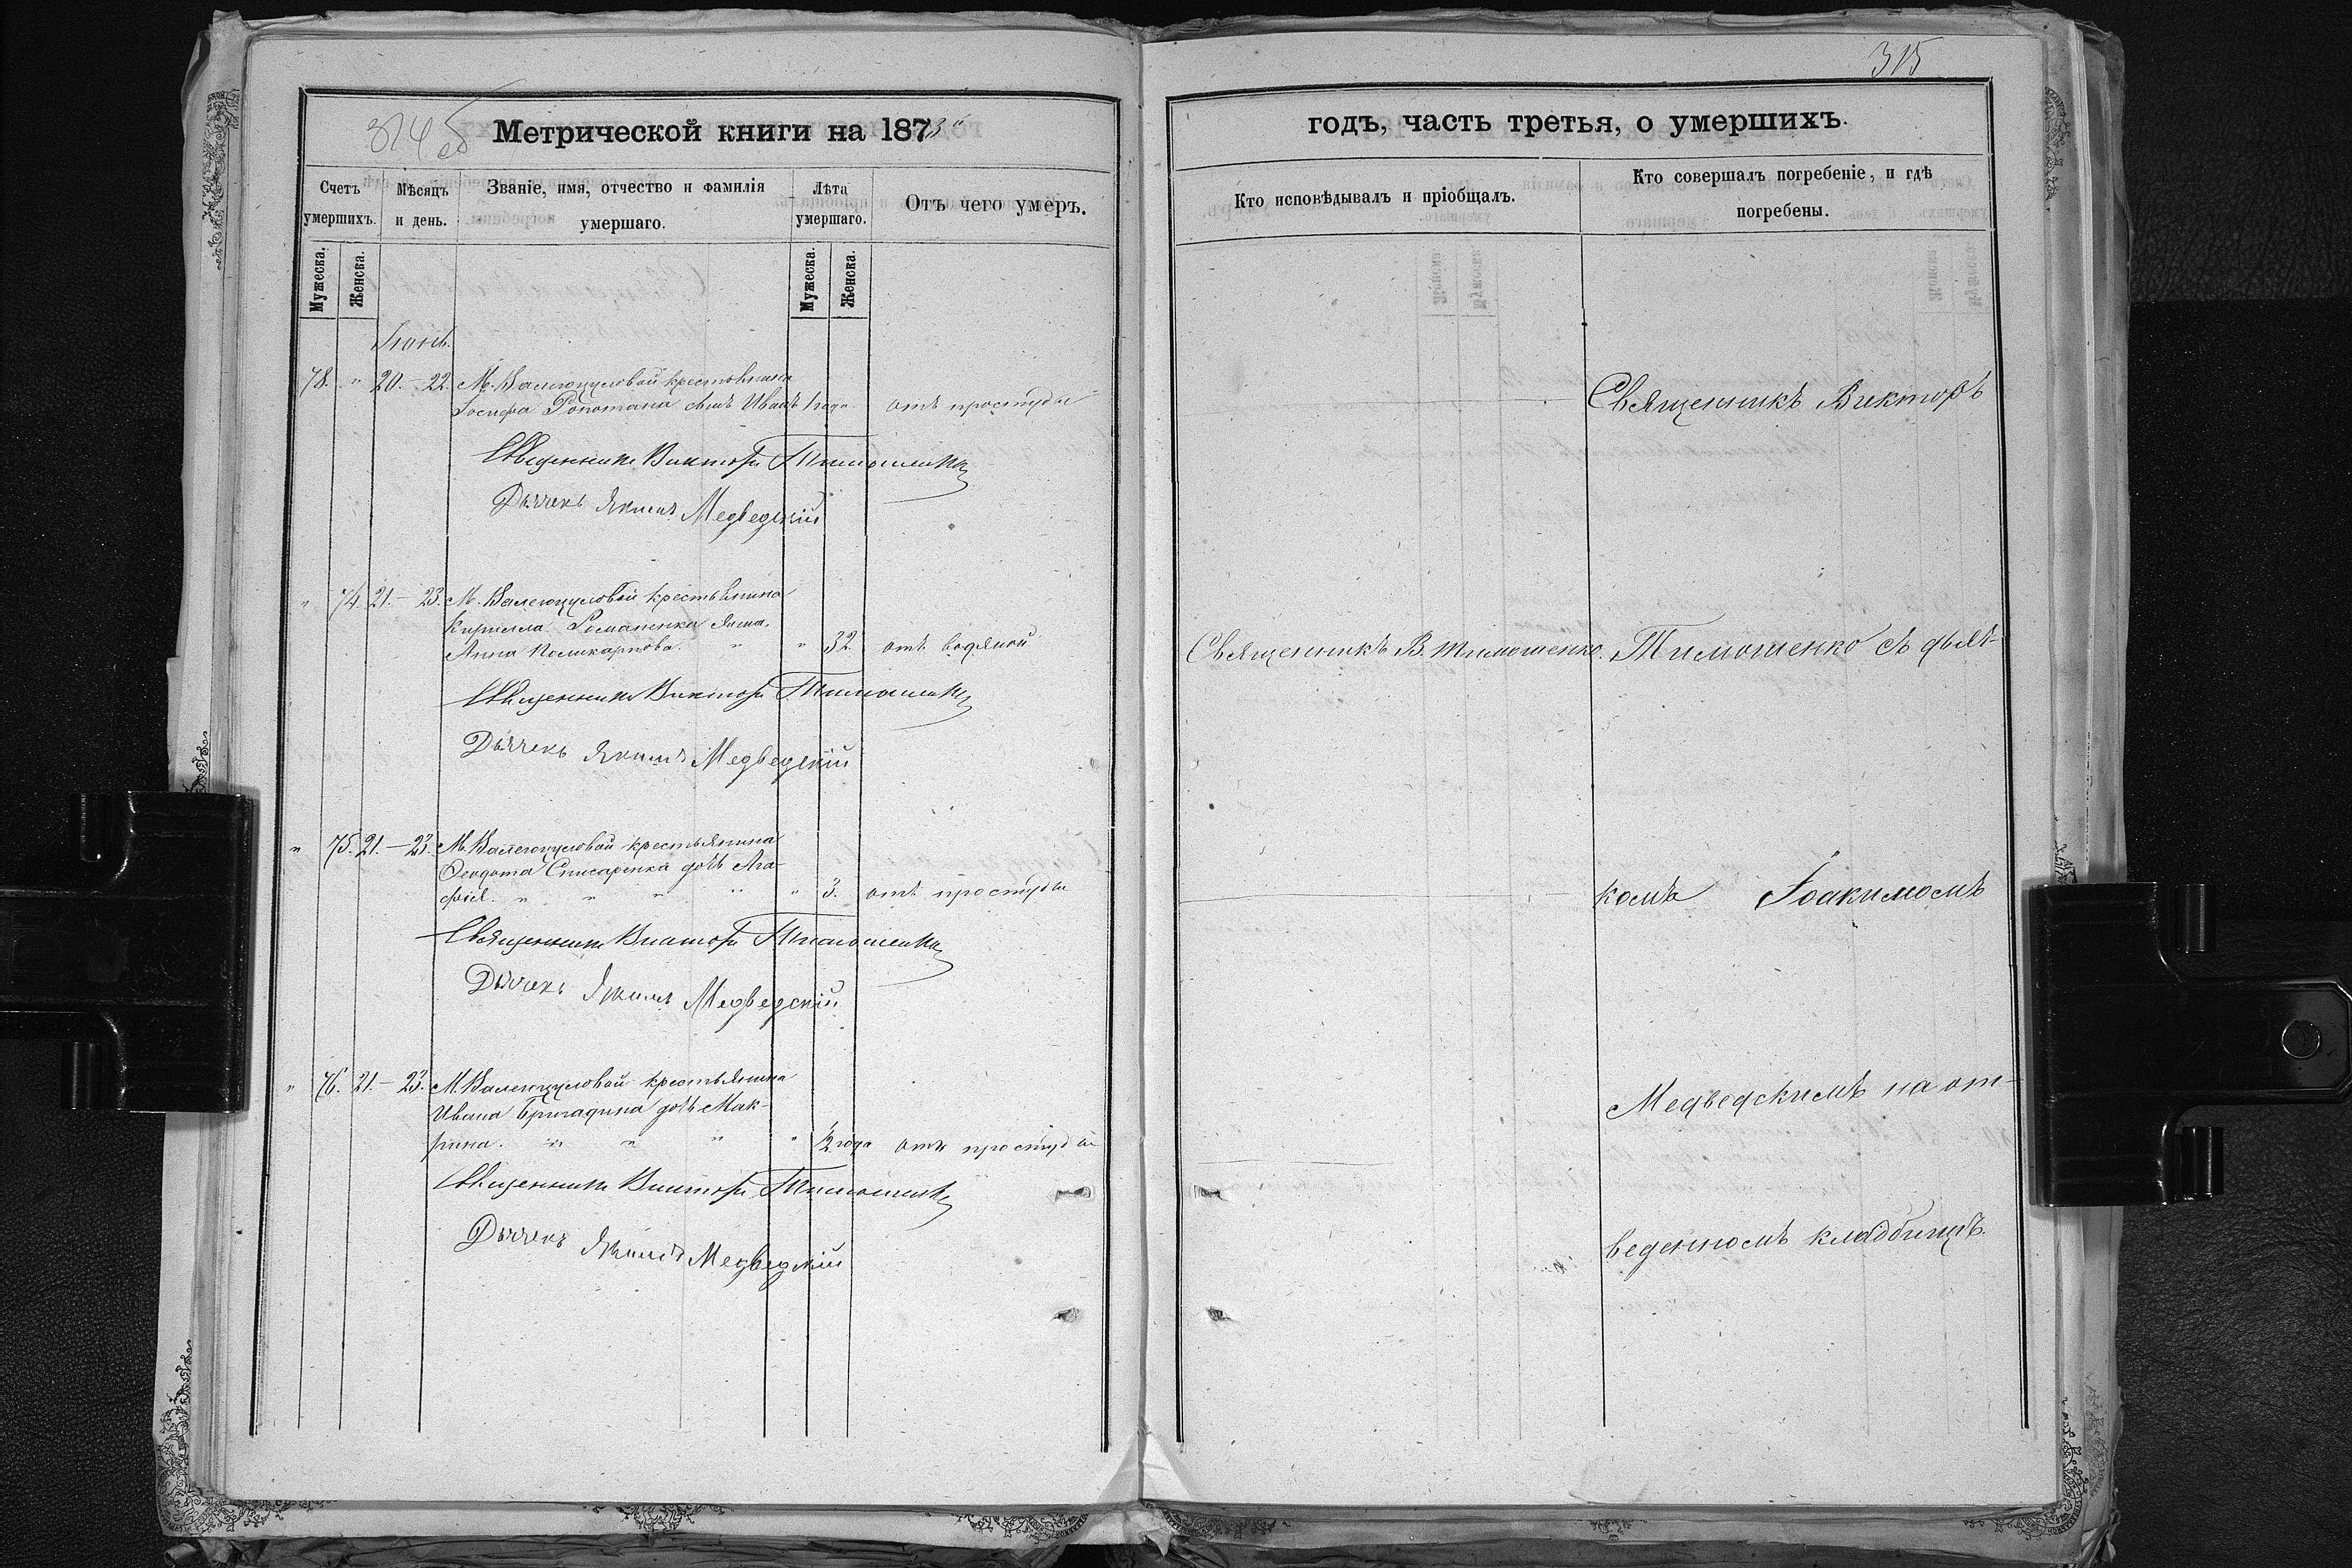 314 об
Метрической книги на 1873й
Счетъ умершихъ.
Мѣсяцъ и день.
Званіе, имя, отчество и фамилія умершаго.
Лѣта умершаго.
Отъ чего умеръ.
Мужеска.
Женска.
Мужеска.
Женска.
78. " 20.-22. М. Валегоцуловой крестьянина
Іосифа сынъ Иванъ 1 года отъ простуды
Священникъ Викторъ Тимошенко
Дьячекъ Якимъ Медведскій
" 74. 21.-23. М. Валегоцуловой крестьянина
Кирилла Романенка жена,
Анна Поликарпова. " " 32 отъ водяной
Священникъ Викторъ Тимошенко
Дьячекъ Якимъ Медведскій
" 75. 21.-23. М. Валегоцуловой крестьянина
Ѳеодота дочь Ага-
фія. " " " " " 3. отъ простуды
Священникъ Викторъ Тимошенко
Дьячекъ Якимъ Медведскій
" 76. 21.-23. М. Валегоцуловой крестьянина
Ивана Бригадина дочь Мак-
рина. " " " " 1/2 года отъ простуды
Священникъ Викторъ Тимошенко
Дьячекъ Якимъ Медведскій
315
годъ, часть третья, о умершихъ.
Кто исповѣдывалъ и пріобщалъ.
Кто совершалъ погребеніе, и гдѣ
погребены.
Священникъ Викторъ
Священникъ В. Тимошенко. Тимошенко съ дьяч-
комъ Іоакимомъ
Медведскимъ на от-
веденномъ кладбищѣ.